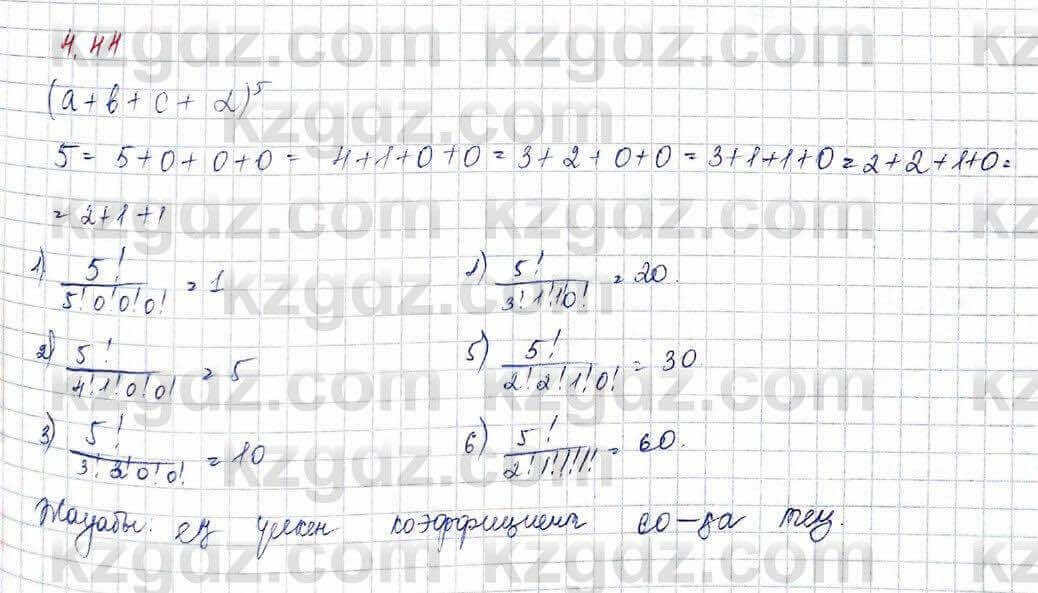 4.44
(a+b+c+d)^5
5 = 5+0+0+0 = 4+1+0+0 = 3+2+0+0 = 3+1+1+0 = 2+2+1+0 =
= 2+1+1
1) 5! / 5!0!0!0! = 1
2) 5! / 4!1!0!0! = 5
3) 5! / 3!2!0!0! = 10
1) 5! / 3!1!1!0! = 20.
5) 5! / 2!2!1!0! = 30.
6) 5! / 2!1!1!1! = 60.
Жауабы: ең үлкен коэффициент 60-қа тең.
kzgdz.com